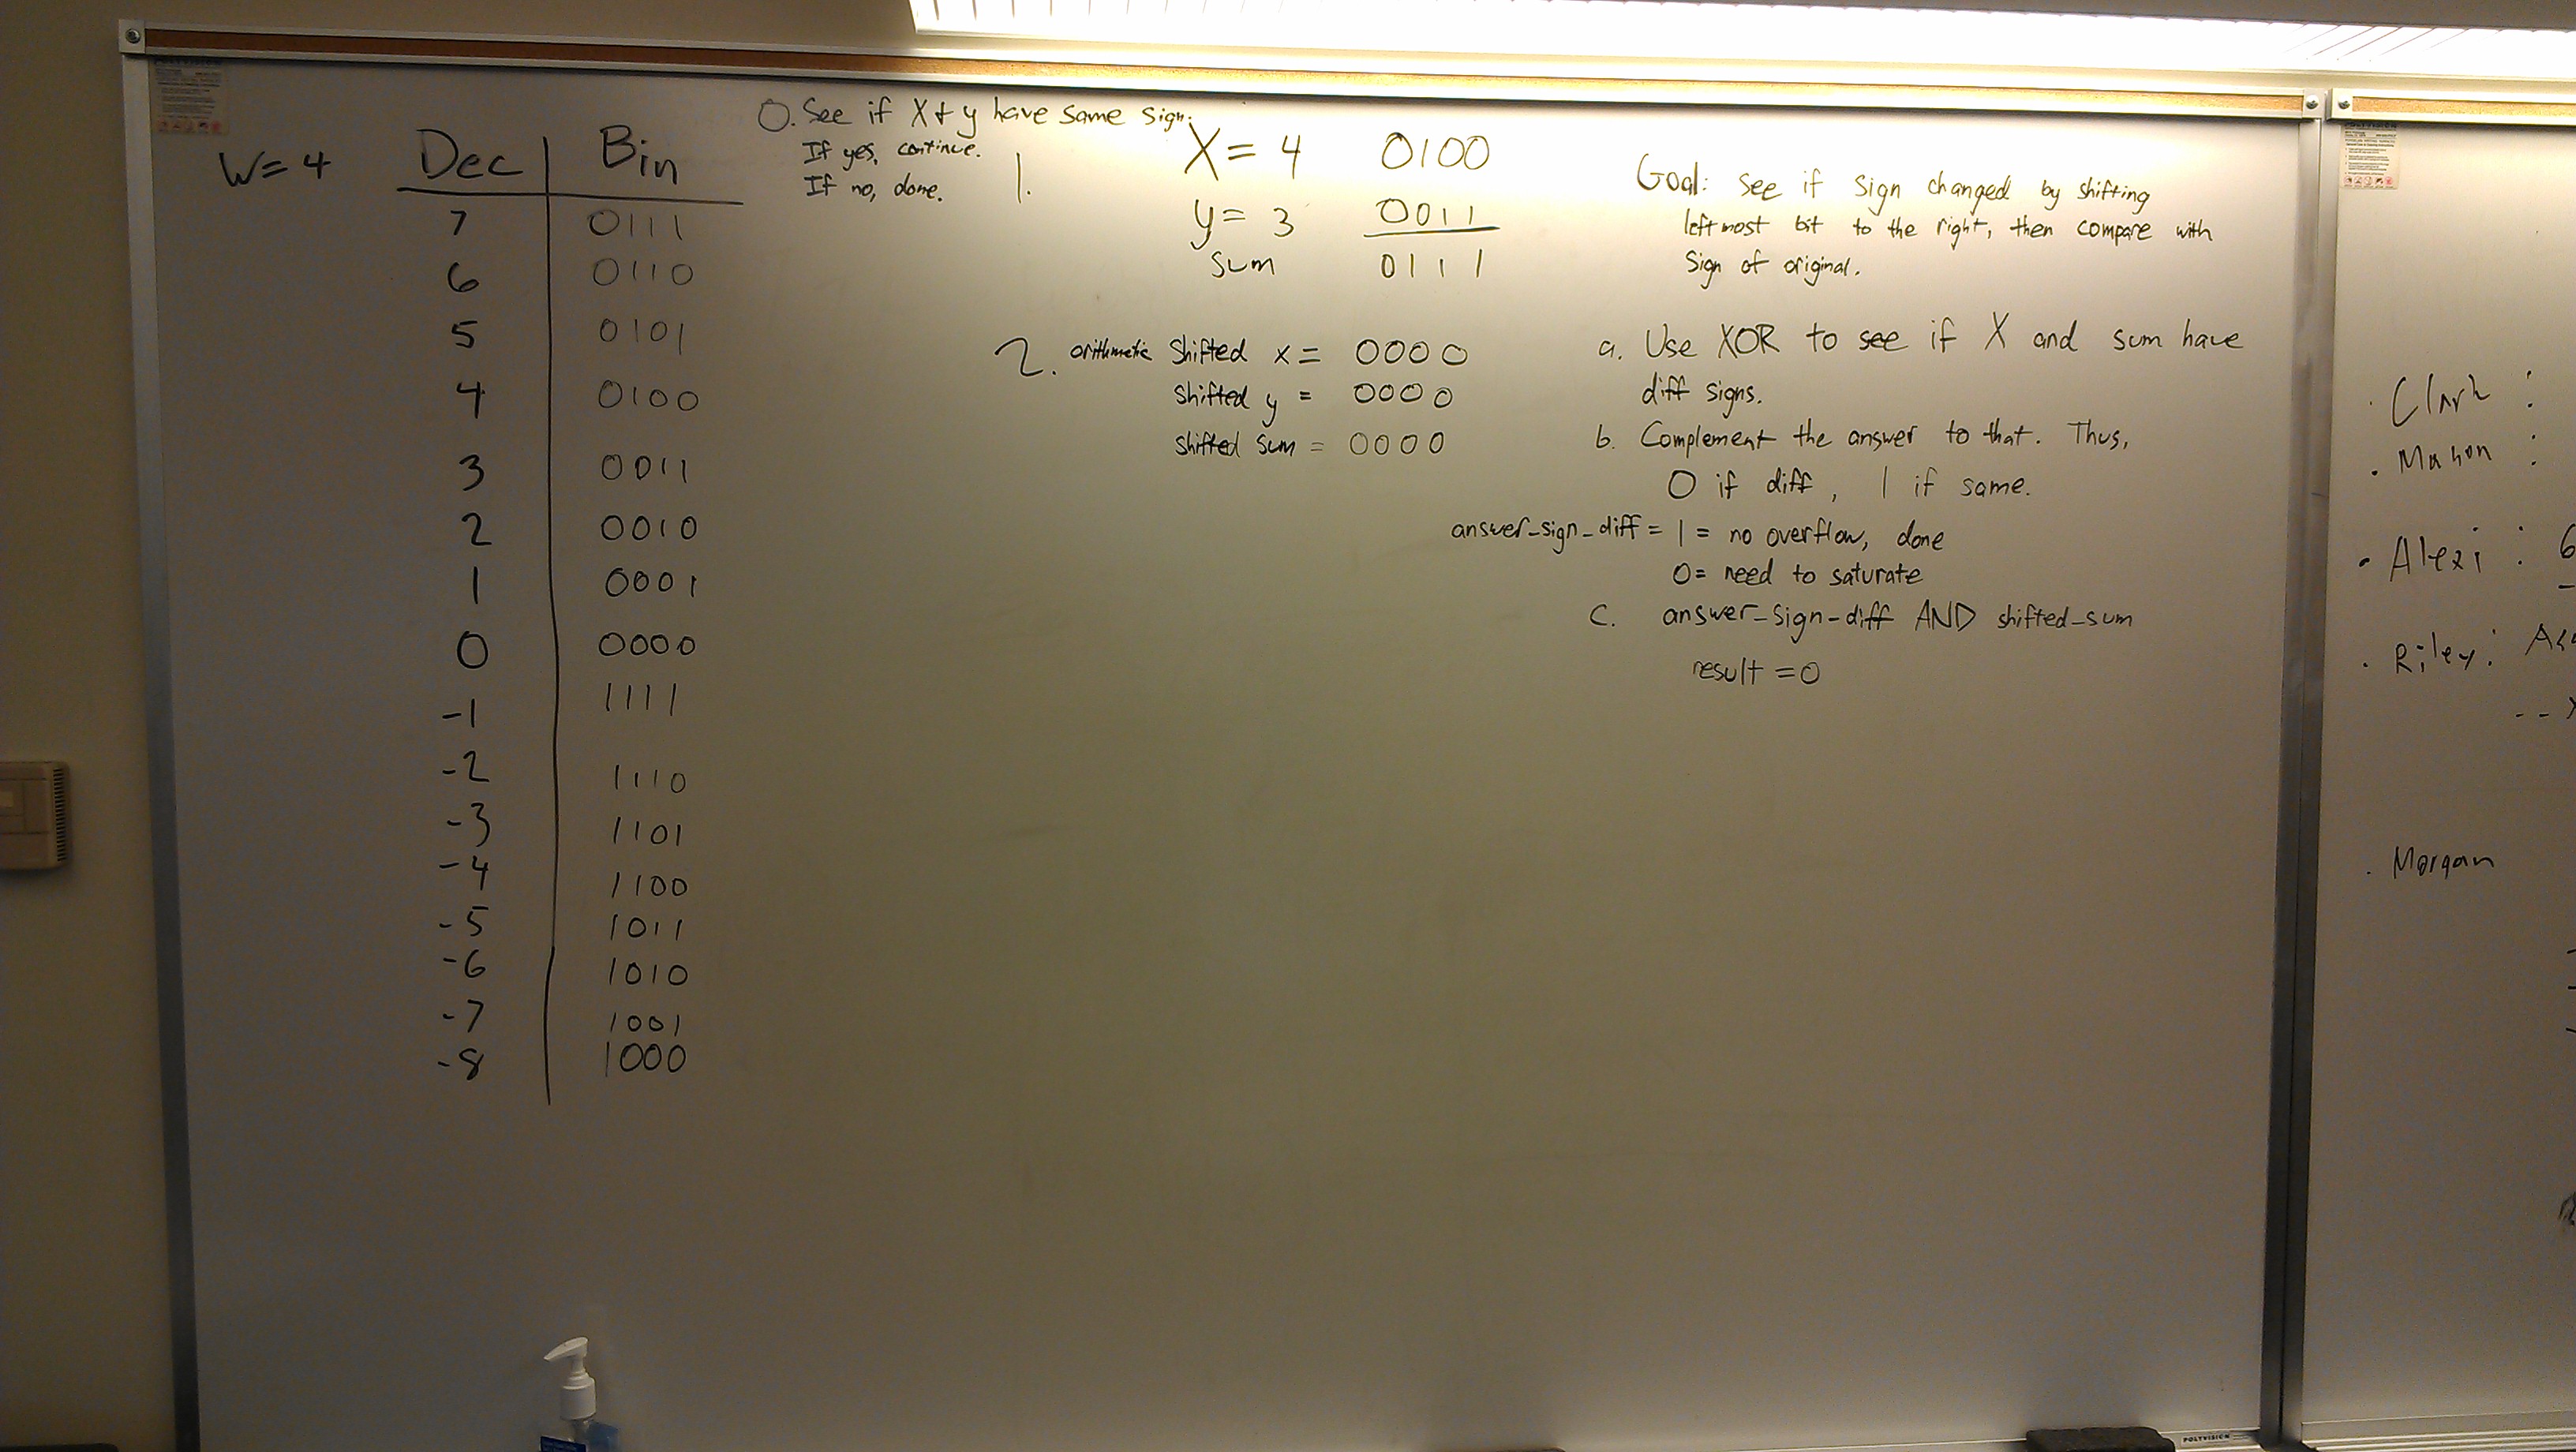 W=4
Dec | Bin
7 0111
6 0110
5 0101
4 0100
3 0011
2 0010
1 0001
0 0000
-1 1111
-2 1110
-3 1101
-4 1100
-5 1011
-6 1010
-7 1001
-8 1000
0. See if X + y have same sign.
If yes, continue.
If no, done.
1.
X = 4 0100
y = 3 0011
sum 0111
2. arithmetic Shifted x = 0000
Shifted y = 0000
Shifted sum = 0000
Goal: See if sign changed by shifting
leftmost bit to the right, then compare with
sign of original.
a. Use XOR to see if X and sum have
diff signs.
b. Complement the answer to that. Thus,
0 if diff, 1 if same.
answer_sign_diff = 1 = no overflow, done
0 = need to saturate
c. answer_sign_diff AND shifted_sum
result = 0
· Clark :
· Mason :
· Alexi : 6
· Riley :
· Morgan
POLYVISION
POLYVISION